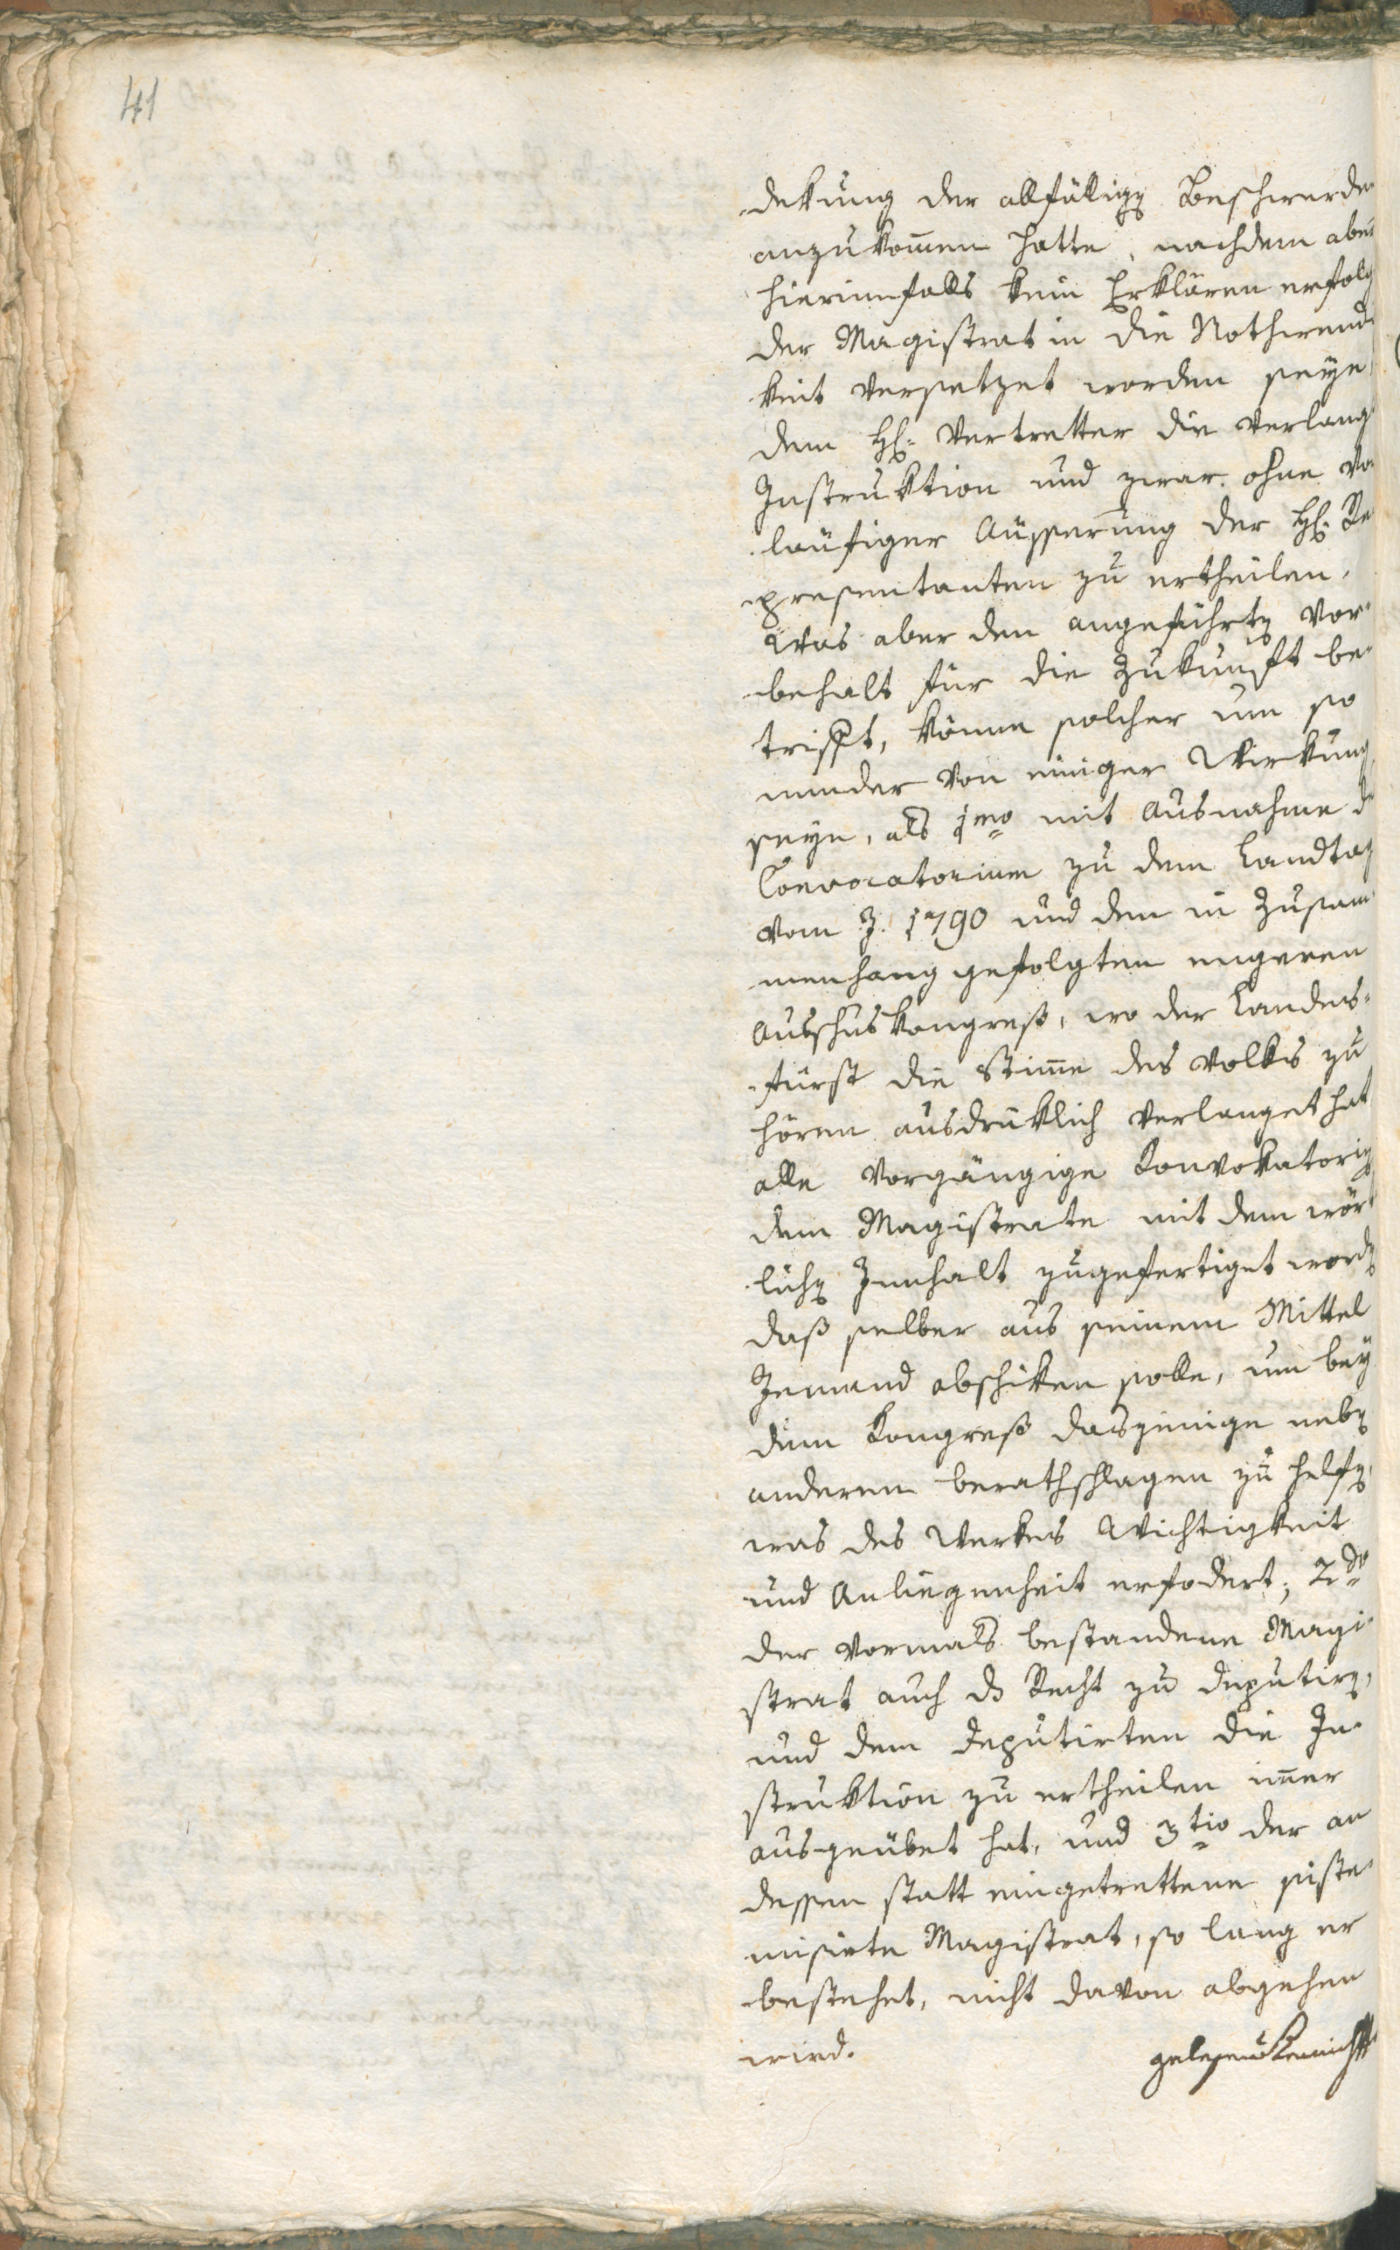 41
dekung der allfälligen Beschwerden
anzukomen hatte, nachdem aber
hierinnfalls kein Erklären erfolg
der Magistrat in die Nothwend
keit versetzet worden seye,
dem H: Vertretter die verlang
Instruktion und zwar ohne vor
läufiger Äusserung der H: Re
presentanten zu ertheilen.
Was aber den angeführten Vor
behalt für die Zukunft be
trifft, könne solcher um so
minder von einiger Wirkung
seyn, als 1mo mit Ausnahme d
Convocatorium zu dem Landtag
vom J. 1790 und dem in Zusam
menhang gefolgten engeren
Ausschuskongreß, wo der Landes
fürst die Stime des Volks zu
hören ausdrüklich verlanget hat
alle vorgängige Konvokatorien
dem Magistrate mit dem wört
lichen Innhalt zugefertiget worden
daß selber aus seinem Mittel
Jemand abschiken solle, um bey
dem Kongreß dasjenige neben
anderen berathschlagen zu helfen,
was des Werkes Wichtigkeit
und Anliegenheit erfodert; 2do
der vormals bestandene Magi
strat auch ds Recht zu deputiren,
und dem Deputirten die In
struktion zu ertheilen imer
ausgeübet hat, und 3tio der an
dessen statt eingetrettene siste
misirte Magistrat, so lang er
bestehet, nicht davon abgehen
wird.
gelesen